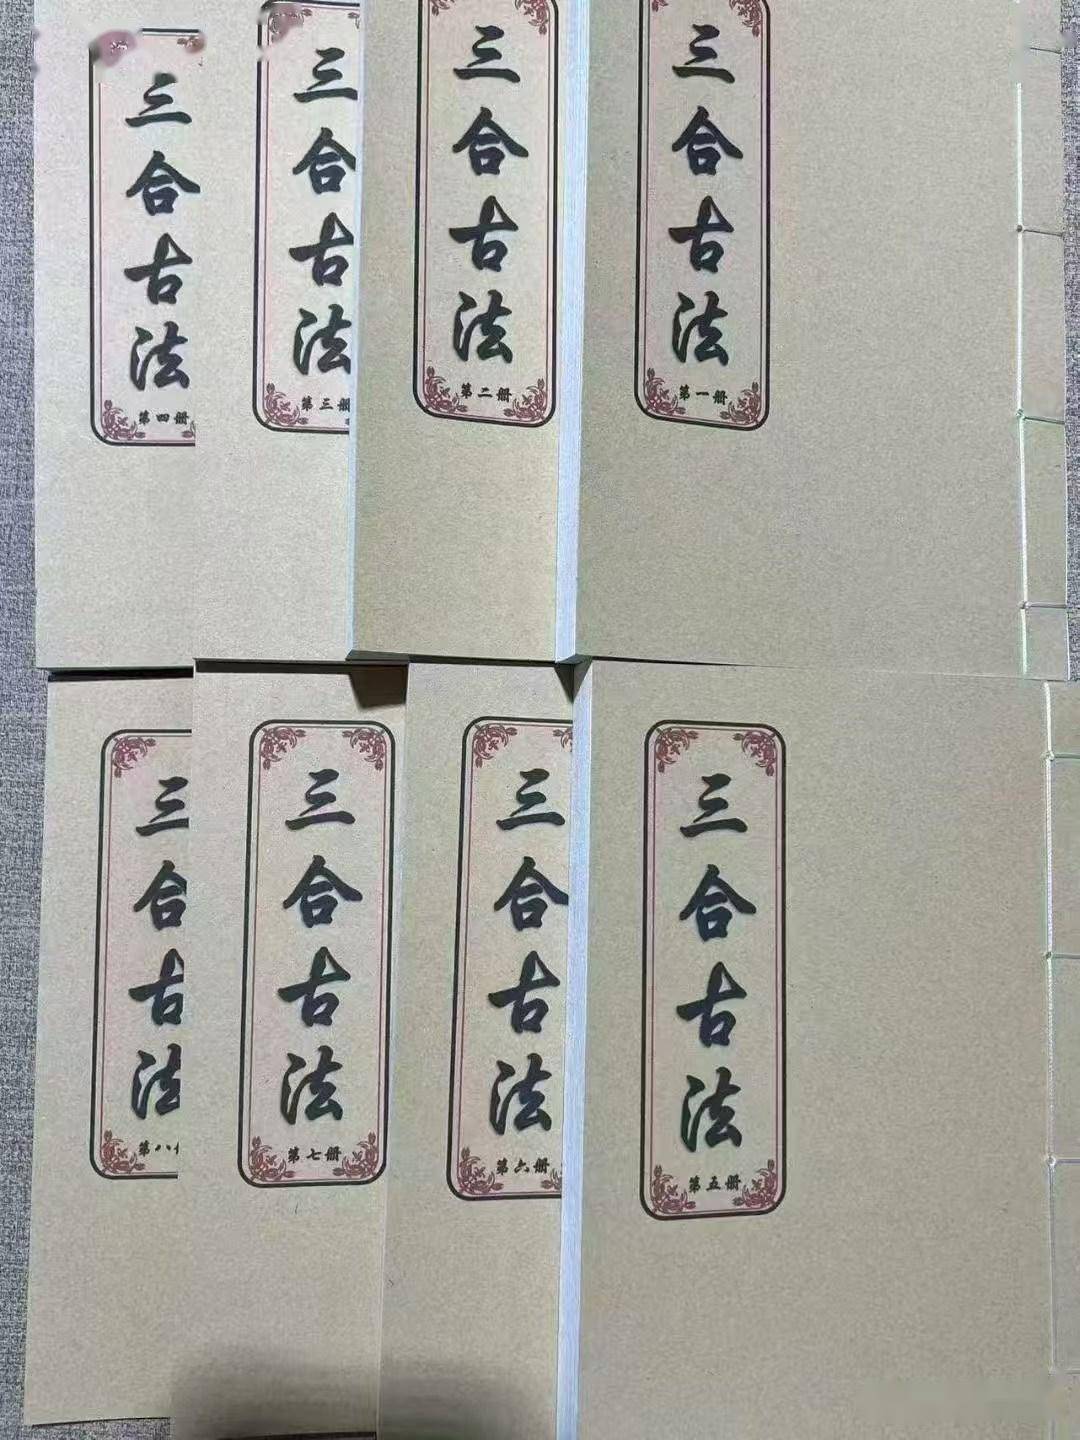 三合古法
第一册
三合古法
第二册
三合古法
第三册
三合古法
第四册
三合古法
第五册
三合古法
第六册
三合古法
第七册
三合古法
第八